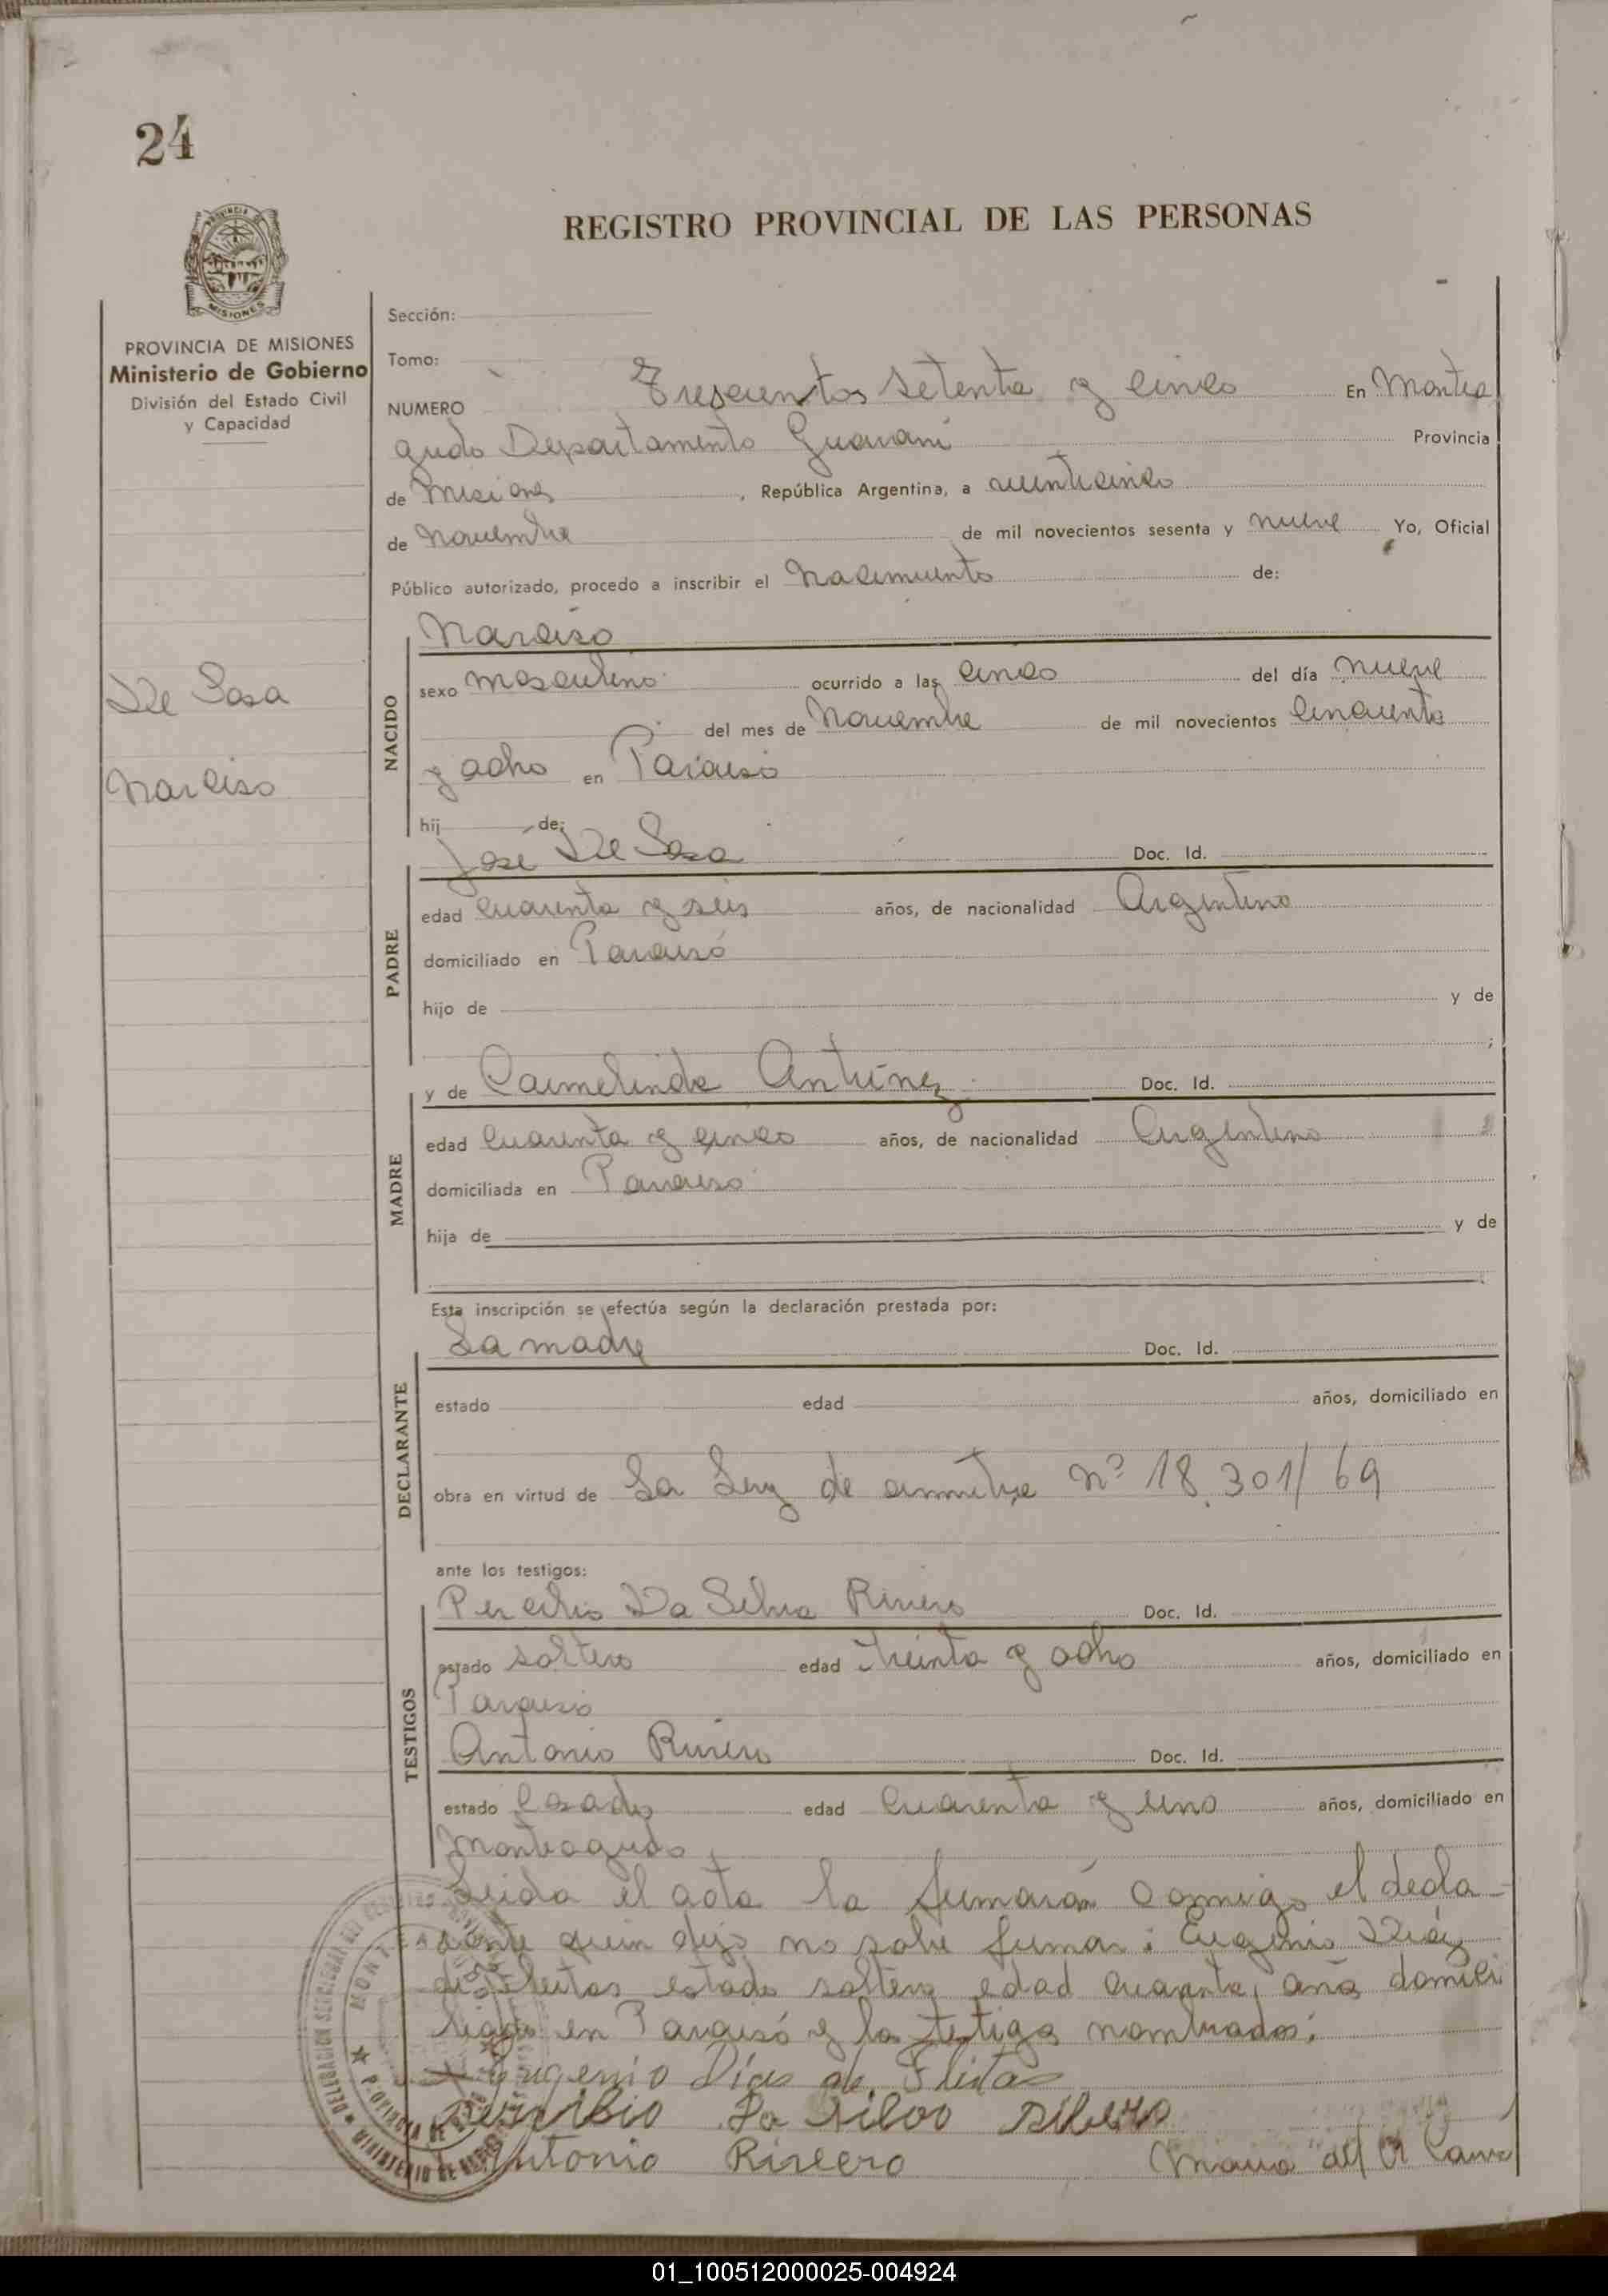 24
REGISTRO PROVINCIAL DE LAS PERSONAS
PROVINCIA DE MISIONES
Ministerio de Gobierno
División del Estado Civil
y Capacidad
De Sosa
Narciso
Sección:
Tomo:
NUMERO Trescientos setenta y cinco En Montea
gudo Departamento Guarani Provincia
de Misiones, República Argentina, a veinticinco
de Noviembre de mil novecientos sesenta y nueve Yo, Oficial
Público autorizado, procedo a inscribir el Nacimiento de:
NACIDO
Narciso
sexo masculino ocurrido a las cinco del día nueve
del mes de Noviembre de mil novecientos cincuenta
y ocho en Paraiso
hij de:
PADRE
José De Sosa Doc. Id.
edad cuarenta y seis años, de nacionalidad Argentino
domiciliado en Paraisó
hijo de y de
;
MADRE
y de Carmelinda Antúnez Doc. Id.
edad cuarenta y cinco años, de nacionalidad Argentina
domiciliada en Paraiso
hija de y de
Esta inscripción se efectúa según la declaración prestada por:
DECLARANTE
La madre Doc. Id.
estado edad años, domiciliado en
obra en virtud de La Ley de amnitia Nº 18.301/69
ante los testigos:
TESTIGOS
Da Silva Rivero Doc. Id.
estado soltero edad treinta y ocho años, domiciliado en
Paraiso
Antonio Rivero Doc. Id.
estado casado edad cuarenta y uno años, domiciliado en
Monteagudo
Leida el acta la firmarán conmigo el decla-
rante quien dijo no sabe firmar: Eugenio Diáz
de fleitas estado soltero edad cuarenta años domici
liado en Paraisó y los testigos nombrados:
Eugenio Días de Fleitas
Da Silva Ribero
Antonio Rivero
Maria del
MONTEAGUDO
01_100512000025-004924